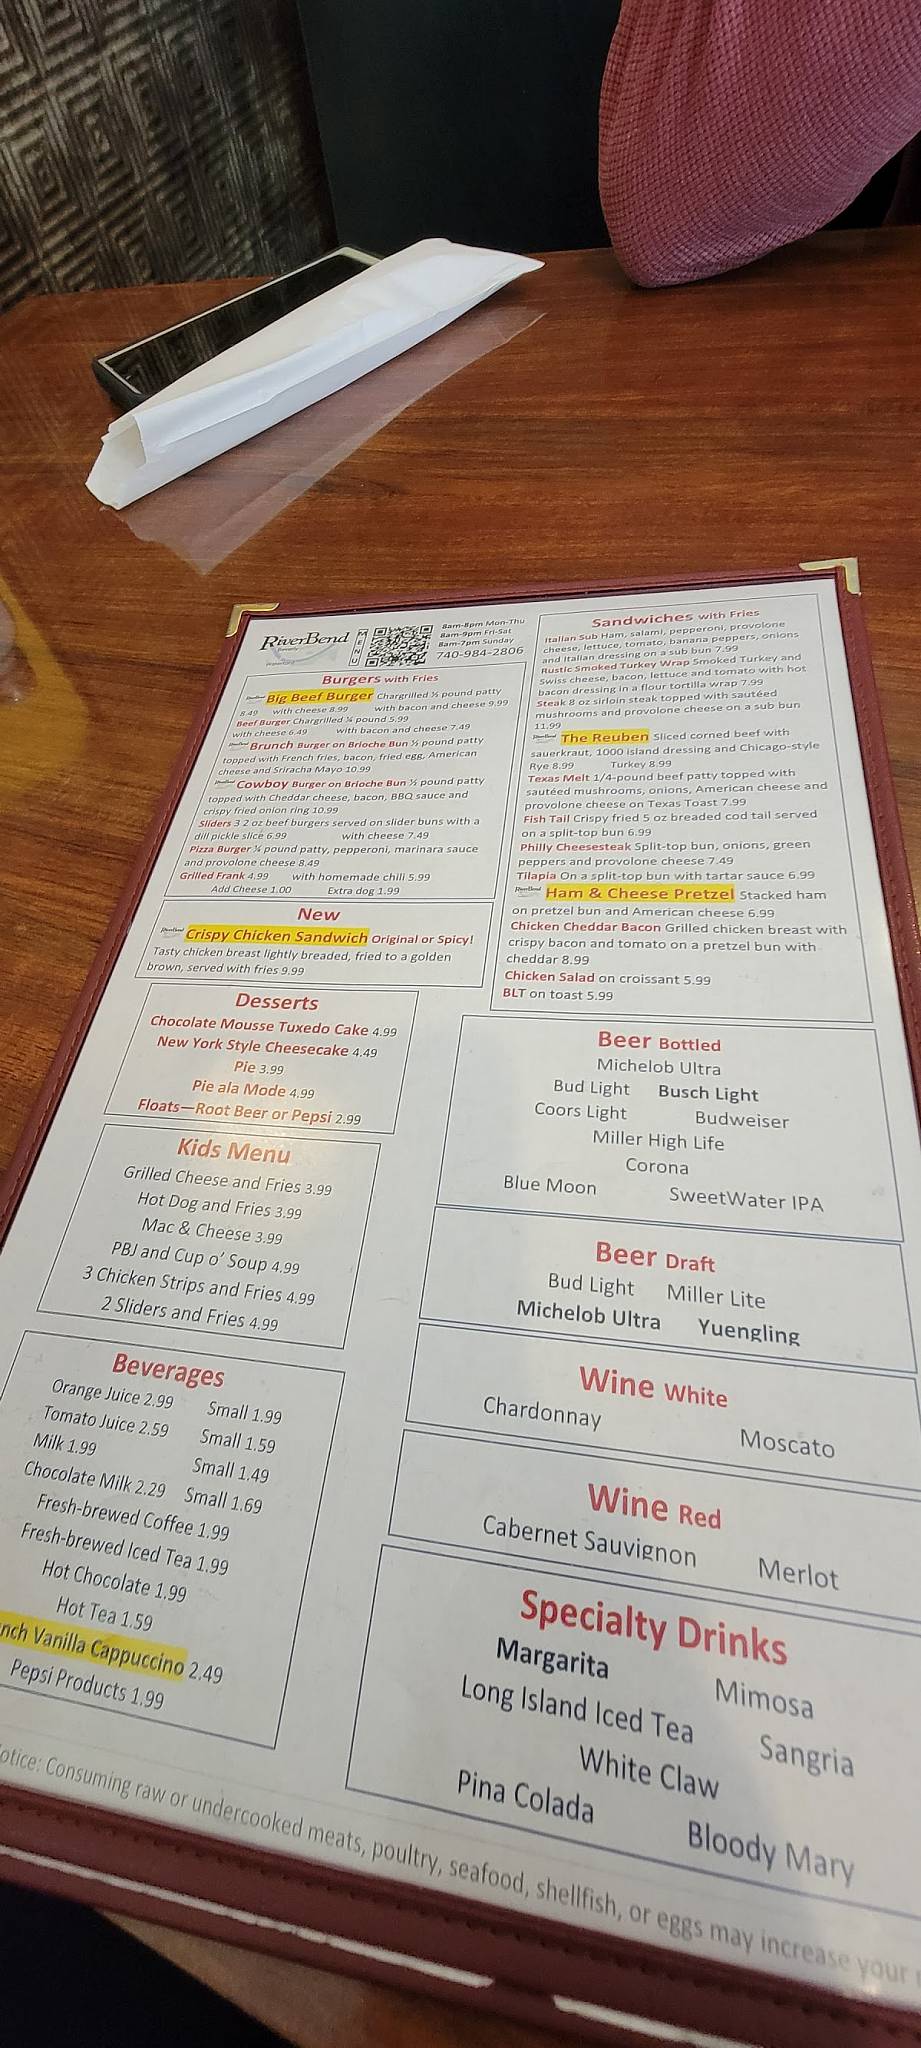 RiverBend
MENU
8am-8pm Mon-Thu
8am-9pm Fri-Sat
8am-7pm Sunday
740-984-2806
Burgers with Fries
Big Beef Burger Chargrilled ½ pound patty
8.49 with cheese 8.99 with bacon and cheese 9.99
Beef Burger Chargrilled ¼ pound 5.99
with cheese 6.49 with bacon and cheese 7.49
Brunch Burger on Brioche Bun ½ pound patty
topped with French fries, bacon, fried egg, American
cheese and Sriracha Mayo 10.99
Cowboy Burger on Brioche Bun ½ pound patty
topped with Cheddar cheese, bacon, BBQ sauce and
crispy fried onion ring 10.99
Sliders 3 2 oz beef burgers served on slider buns with a
dill pickle slice 6.99 with cheese 7.49
Pizza Burger ¼ pound patty, pepperoni, marinara sauce
and provolone cheese 8.49
Grilled Frank 4.99 with homemade chili 5.99
Add Cheese 1.00 Extra dog 1.99
New
Crispy Chicken Sandwich Original or Spicy!
Tasty chicken breast lightly breaded, fried to a golden
brown, served with fries 9.99
Desserts
Chocolate Mousse Tuxedo Cake 4.99
New York Style Cheesecake 4.49
Pie 3.99
Pie ala Mode 4.99
Floats—Root Beer or Pepsi 2.99
Kids Menu
Grilled Cheese and Fries 3.99
Hot Dog and Fries 3.99
Mac & Cheese 3.99
PBJ and Cup o' Soup 4.99
3 Chicken Strips and Fries 4.99
2 Sliders and Fries 4.99
Beverages
Orange Juice 2.99 Small 1.99
Tomato Juice 2.59 Small 1.59
Milk 1.99 Small 1.49
Chocolate Milk 2.29 Small 1.69
Fresh-brewed Coffee 1.99
Fresh-brewed Iced Tea 1.99
Hot Chocolate 1.99
Hot Tea 1.59
nch Vanilla Cappuccino 2.49
Pepsi Products 1.99
Sandwiches with Fries
Italian Sub Ham, salami, pepperoni, provolone
cheese, lettuce, tomato, banana peppers, onions
and Italian dressing on a sub bun 7.99
Rustic Smoked Turkey Wrap Smoked Turkey and
Swiss cheese, bacon, lettuce and tomato with hot
bacon dressing in a flour tortilla wrap 7.99
Steak 8 oz sirloin steak topped with sautéed
mushrooms and provolone cheese on a sub bun
11.99
The Reuben Sliced corned beef with
sauerkraut, 1000 island dressing and Chicago-style
Rye 8.99 Turkey 8.99
Texas Melt 1/4-pound beef patty topped with
sautéed mushrooms, onions, American cheese and
provolone cheese on Texas Toast 7.99
Fish Tail Crispy fried 5 oz breaded cod tail served
on a split-top bun 6.99
Philly Cheesesteak Split-top bun, onions, green
peppers and provolone cheese 7.49
Tilapia On a split-top bun with tartar sauce 6.99
Ham & Cheese Pretzel Stacked ham
on pretzel bun and American cheese 6.99
Chicken Cheddar Bacon Grilled chicken breast with
crispy bacon and tomato on a pretzel bun with
cheddar 8.99
Chicken Salad on croissant 5.99
BLT on toast 5.99
Beer Bottled
Michelob Ultra
Bud Light Busch Light
Coors Light Budweiser
Miller High Life
Corona
Blue Moon SweetWater IPA
Beer Draft
Bud Light Miller Lite
Michelob Ultra Yuengling
Wine White
Chardonnay Moscato
Wine Red
Cabernet Sauvignon Merlot
Specialty Drinks
Margarita Mimosa
Long Island Iced Tea Sangria
White Claw
Pina Colada Bloody Mary
otice: Consuming raw or undercooked meats, poultry, seafood, shellfish, or eggs may increase your